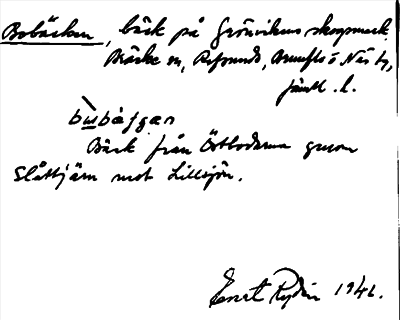 Bobäcken, bäck på Grönvikens skogsmark
Bräcke sn, Refsunds, Brunflo o Näs tg,
Jämtl. l.
bu̲bàjgan
Bäck från Östbodarna genom
Slåttjärn mot Lillsjön.
Ernst Rydén 1941.